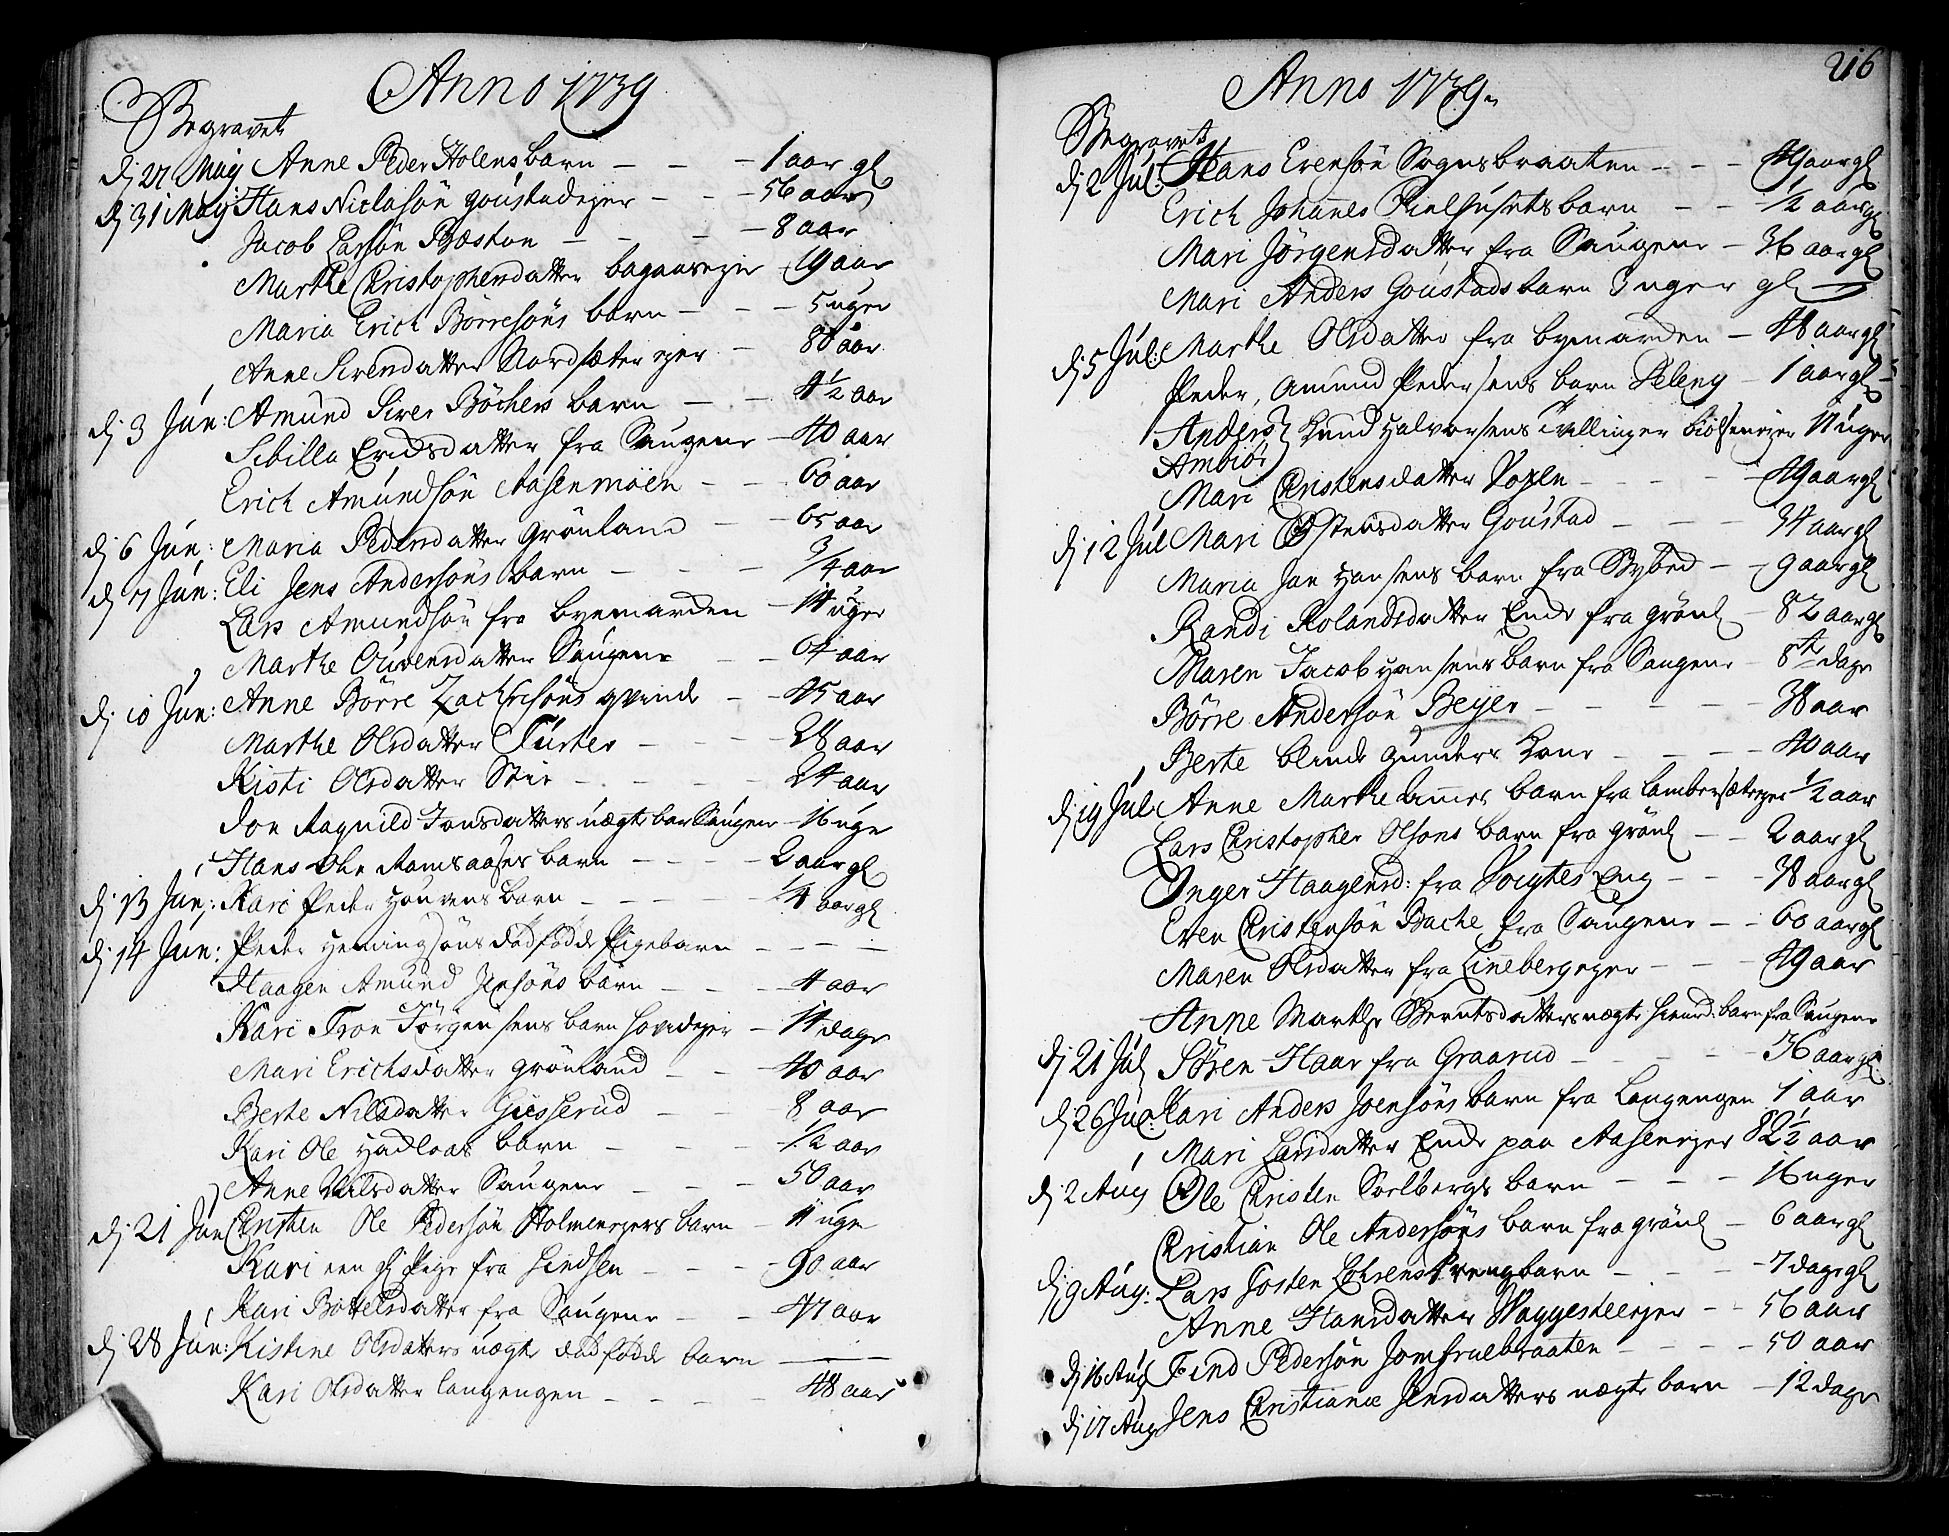 Anno 1739
Begravet
d; 27 Maij Anne Peder Holens barn – – – 1 aar gl
d; 31 Maij Hans Niclasön goustadejer – – – 56 aar
Jacob Larsön Bæston – – – – 8 aar
Marthe Christophersdatter bagaasejer – 19 aar
Maria Erich Börresöns barn – – – 5 uger
Anne Siversdatter Nordsæter ejer – 80 aar
d; 3 Jun: Amund Siver Böchers barn – – 4 1/2 aar
Sibilla Erichsdatter fra Saugene – 40 aar
Erich Amundsön Aasenmoen – – – 60 aar
d; 6 Jun: Maria Pedersdatter Grönland – – 65 aar
d 7 Jun: Eli Jens Andersöns barn – – – 3/4 aar
Lars Amundsön fra byemarden – 14 uger
Marthe Oudensdatter Saugene – – 64 aar
d; 10 Jun: Anne Börre Zachrisöns qvinde – – 45 aar
Marthe Olsdatter Türtes – – – 28 aar
Kisti Olsdatter Stie – – – – 24 aar
don Ragnild Jonsdatters uægte bar Saugene – 16 uge
Hans Ole Ramsaases barn – – – – 2 aar gl
d; 13 Jun: Kari Peder Houvens barn – – – – 1/4 aar gl
d; 14 Jun: Peder Hemingsöns dödfödde Pigebarn – – – –
Haagen Amund Jensöns barn – – – 4 aar
Kari Tron Jörgensens barn hovindejer – 14 dage
Mari Erichsdatter grönland – – – 40 aar
Berte Nilsdatter Giesserud – – 8 aar
Kari Ole Hadloas barn – – – 1/2 aar
Anne Nilsdatter Saugene – – – 50 aar
d; 21 Jun Christen Ole Pedersön Holmenejers barn – 11 uge
Kari een gl Pige fra Lindsen – – – 90 aar
Kari Bottelsdatter fra Saugene – – 47 aar
d; 28 Jun: Kistine Olsdatters uægte dödfödde barn –
Kari Olsdatter langengen – – – – 48 aar
216
Anno 1739
Begravet
d; 2 Jul: Hans Evensön Sognsbraaten – – – 49 aar gl
Erich Johannes Pielhusets barn – – – 1/2 aar gl
Mari Jörgensdatter fra Saugene – 36 aar gl
Mari Anders Goustads barn 3 uger gl
d; 5 Jul: Marthe Olsdatter fra byemarden – 48 aar gl
Peder, Amund Pedersens barn Peleng – 1 aar gl
Anders } Knud Halvorsens Tvillinger biölsenejer 11 uger
Ambiör }
Mari Christensdatter Voxen – – – – 49 aar gl
d; 12 Jul Mari Östensdatter Goustad – – – 34 aar gl
Maria Jan Hansens barn fra Bybed – – 9 aar gl
Randi Rolandsdatter Encke fra grönl – 82 aar gl
Maren Jacob Hansens barn fra Saugene – 8te dage
Börre Andersön Beyer – – – – – 38 aar
Berte blinde gunders Kone – – – – 40 aar
d; 19 Jul Anne Marthe barn fra lambersæterejer 1/2 aar
Lars Christopher Olsons barn fra grönl – – 2 aar gl
Inger Haagensd: fra Voigtes Eng – – – 38 aar gl
Even Christensön Bache fra Saugene – – 60 aar gl
Maren Olsdatter fra Linebergejer – – – 49 aar
Anne Marthe Berntsdatters uægte barn fra Saugene
d; 21 Jul Sören Haar fra Graarud – – – – 36 aar gl
d; 26 Jul: Kari Anders Joensöns barn fra Langengen 1 aar
Mari Larsdatter Encke paa Aasenejer 82 1/2 aar
d; 2 Aug Ole Christen Sorlbergs barn – – – 16 uger
Christian Ole Andersöns barn fra grönl – 6 aar gl
d; 9 Aug: Lars Josten barn – – – 7 dage gl
Anne Hansdatter Waggesteenejer – – 56 aar
d; 16 Aug Find Pedersön Jomfruebraaten – – – – 50 aar
d; 17 Aug Jens Christianæ Jensdatters uægte barn – 12 dage